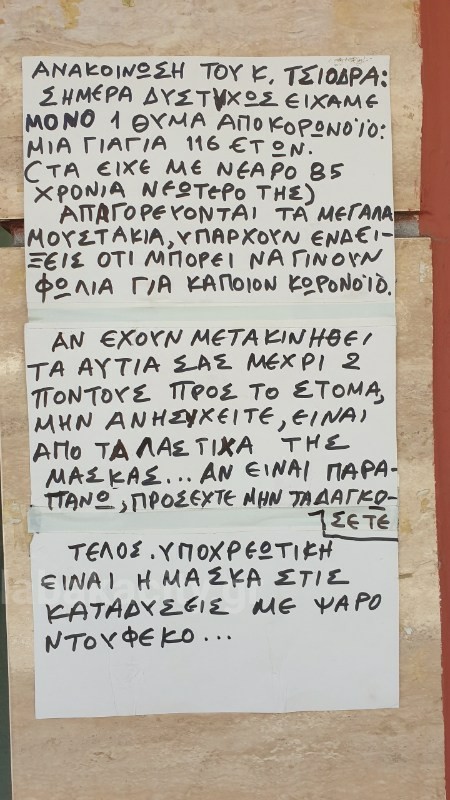 ΑΝΑΚΟΙΝΩΣΗ ΤΟΥ Κ. ΤΣΙΟΔΡΑ:
ΣΗΜΕΡΑ ΔΥΣΤΥΧΩΣ ΕΙΧΑΜΕ
ΜΟΝΟ 1 ΘΥΜΑ ΑΠΟ ΚΟΡΩΝΟΪΟ:
ΜΙΑ ΓΙΑΓΙΑ 116 ΕΤΩΝ.
(ΤΑ ΕΙΧΕ ΜΕ ΝΕΑΡΟ 85
ΧΡΟΝΙΑ ΝΕΩΤΕΡΟ ΤΗΣ)
ΑΠΑΓΟΡΕΥΟΝΤΑΙ ΤΑ ΜΕΓΑΛΑ
ΜΟΥΣΤΑΚΙΑ, ΥΠΑΡΧΟΥΝ ΕΝΔΕΙ-
ΞΕΙΣ ΟΤΙ ΜΠΟΡΕΙ ΝΑ ΓΙΝΟΥΝ
ΦΩΛΙΑ ΓΙΑ ΚΑΠΟΙΟΝ ΚΩΡΟΝΟΪΟ.
ΑΝ ΕΧΟΥΝ ΜΕΤΑΚΙΝΗΘΕΙ
ΤΑ ΑΥΤΙΑ ΣΑΣ ΜΕΧΡΙ 2
ΠΟΝΤΟΥΣ ΠΡΟΣ ΤΟ ΣΤΟΜΑ,
ΜΗΝ ΑΝΗΣΥΧΕΙΤΕ, ΕΙΝΑΙ
ΑΠΟ ΤΑ ΛΑΣΤΙΧΑ ΤΗΣ
ΜΑΣΚΑΣ... ΑΝ ΕΙΝΑΙ ΠΑΡΑ-
ΠΑΝΩ, ΠΡΟΣΕΧΤΕ ΜΗΝ ΤΑ ΔΑΓΚΩ-
ΣΕΤΕ
ΤΕΛΟΣ. ΥΠΟΧΡΕΩΤΙΚΗ
ΕΙΝΑΙ Η ΜΑΣΚΑ ΣΤΙΣ
ΚΑΤΑΔΥΣΕΙΣ ΜΕ ΨΑΡΟ
ΝΤΟΥΦΕΚΟ...